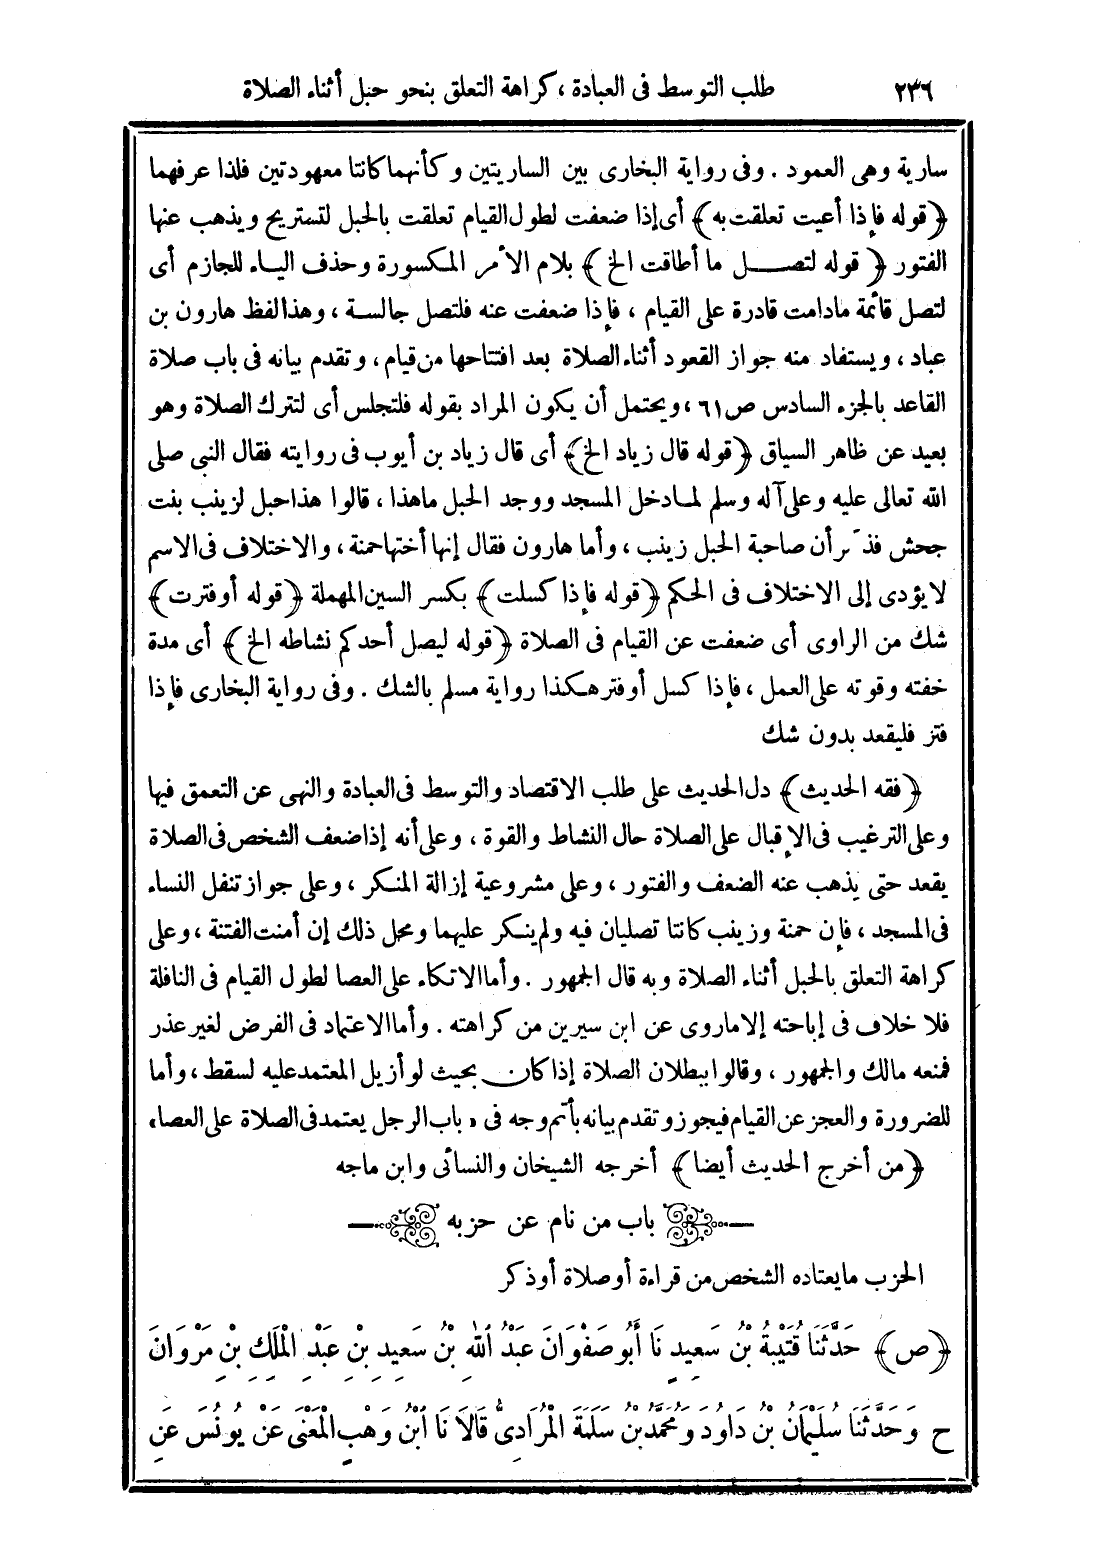 ٢٣٦ طلب التوسط فى العبادة ، كراهة التعلق بنحو حبل أثناء الصلاة
سارية وهى العمود . وفى رواية البخارى بين الساريتين وكأنهما كانتا معهودتين فلذا عرفهما
﴿قوله فإذا أعيت تعلقت به﴾ أى إذا ضعفت لطول القيام تعلقت بالحبل لتستريح ويذهب عنها
الفتور ﴿قوله لتصل ما أطاقت الخ﴾ بلام الأمر المكسورة وحذف الياء للجازم أى
لتصل قائمة مادامت قادرة على القيام ، فإذا ضعفت عنه فلتصل جالسة ، وهذا لفظ هارون بن
عباد ، ويستفاد منه جواز القعود أثناء الصلاة بعد افتتاحها من قيام ، وتقدم بيانه فى باب صلاة
القاعد بالجزء السادس ص ٦١ ، ويحتمل أن يكون المراد بقوله فلتجلس أى لتترك الصلاة وهو
بعيد عن ظاهر السياق ﴿قوله قال زياد الخ﴾ أى قال زياد بن أيوب فى روايته فقال النبى صلى
الله تعالى عليه وعلى آله وسلم لما دخل المسجد ووجد الحبل ماهذا ، قالوا هذا حبل لزينب بنت
جحش فذكر أن صاحبة الحبل زينب ، وأما هارون فقال إنها أختها حمنة ، والاختلاف فى الاسم
لا يؤدى إلى الاختلاف فى الحكم ﴿قوله فإذا كسلت﴾ بكسر السين المهملة ﴿قوله أو فترت﴾
شك من الراوى أى ضعفت عن القيام فى الصلاة ﴿قوله ليصل أحدكم نشاطه الخ﴾ أى مدة
خفته وقوته على العمل ، فإذا كسل أو فتر هكذا رواية مسلم بالشك . وفى رواية البخارى فإذا
فتر فليقعد بدون شك
﴿فقه الحديث﴾ دل الحديث على طلب الاقتصاد والتوسط فى العبادة والنهى عن التعمق فيها
وعلى الترغيب فى الإقبال على الصلاة حال النشاط والقوة ، وعلى أنه إذا ضعف الشخص فى الصلاة
يقعد حتى يذهب عنه الضعف والفتور ، وعلى مشروعية إزالة المنكر ، وعلى جواز تنفل النساء
فى المسجد ، فإن حمنة وزينب كانتا تصليان فيه ولم ينكر عليهما ومحل ذلك إن أمنت الفتنة ، وعلى
كراهة التعلق بالحبل أثناء الصلاة وبه قال الجمهور . وأما الاتكاء على العصا لطول القيام فى النافلة
فلا خلاف فى إباحته إلا ماروى عن ابن سيرين من كراهته . وأما الاعتماد فى الفرض لغير عذر
فمنعه مالك والجمهور ، وقالوا ببطلان الصلاة إذا كان بحيث لو أزيل المعتمد عليه لسقط ، وأما
للضرورة والعجز عن القيام فيجوز وتقدم بيانه بأتم وجه فى «باب الرجل يعتمد فى الصلاة على العصا»
﴿من أخرج الحديث أيضا﴾ أخرجه الشيخان والنسائى وابن ماجه
باب من نام عن حزبه
الحزب ما يعتاده الشخص من قراءة أو صلاة أو ذكر
﴿ص﴾ حَدَّثَنَا قُتَيْبَةُ بْنُ سَعِيدٍ نَا أَبُو صَفْوَانَ عَبْدُ اللهِ بْنُ سَعِيدِ بْنِ عَبْدِ الْمَلِكِ بْنِ مَرْوَانَ
ح وَحَدَّثَنَا سُلَيْمَانُ بْنُ دَاوُدَ وَمُحَمَّدُ بْنُ سَلَمَةَ الْمُرَادِىُّ قَالَا نَا ابْنُ وَهْبٍ الْمَعْنَى عَنْ يُونُسَ عَنِ